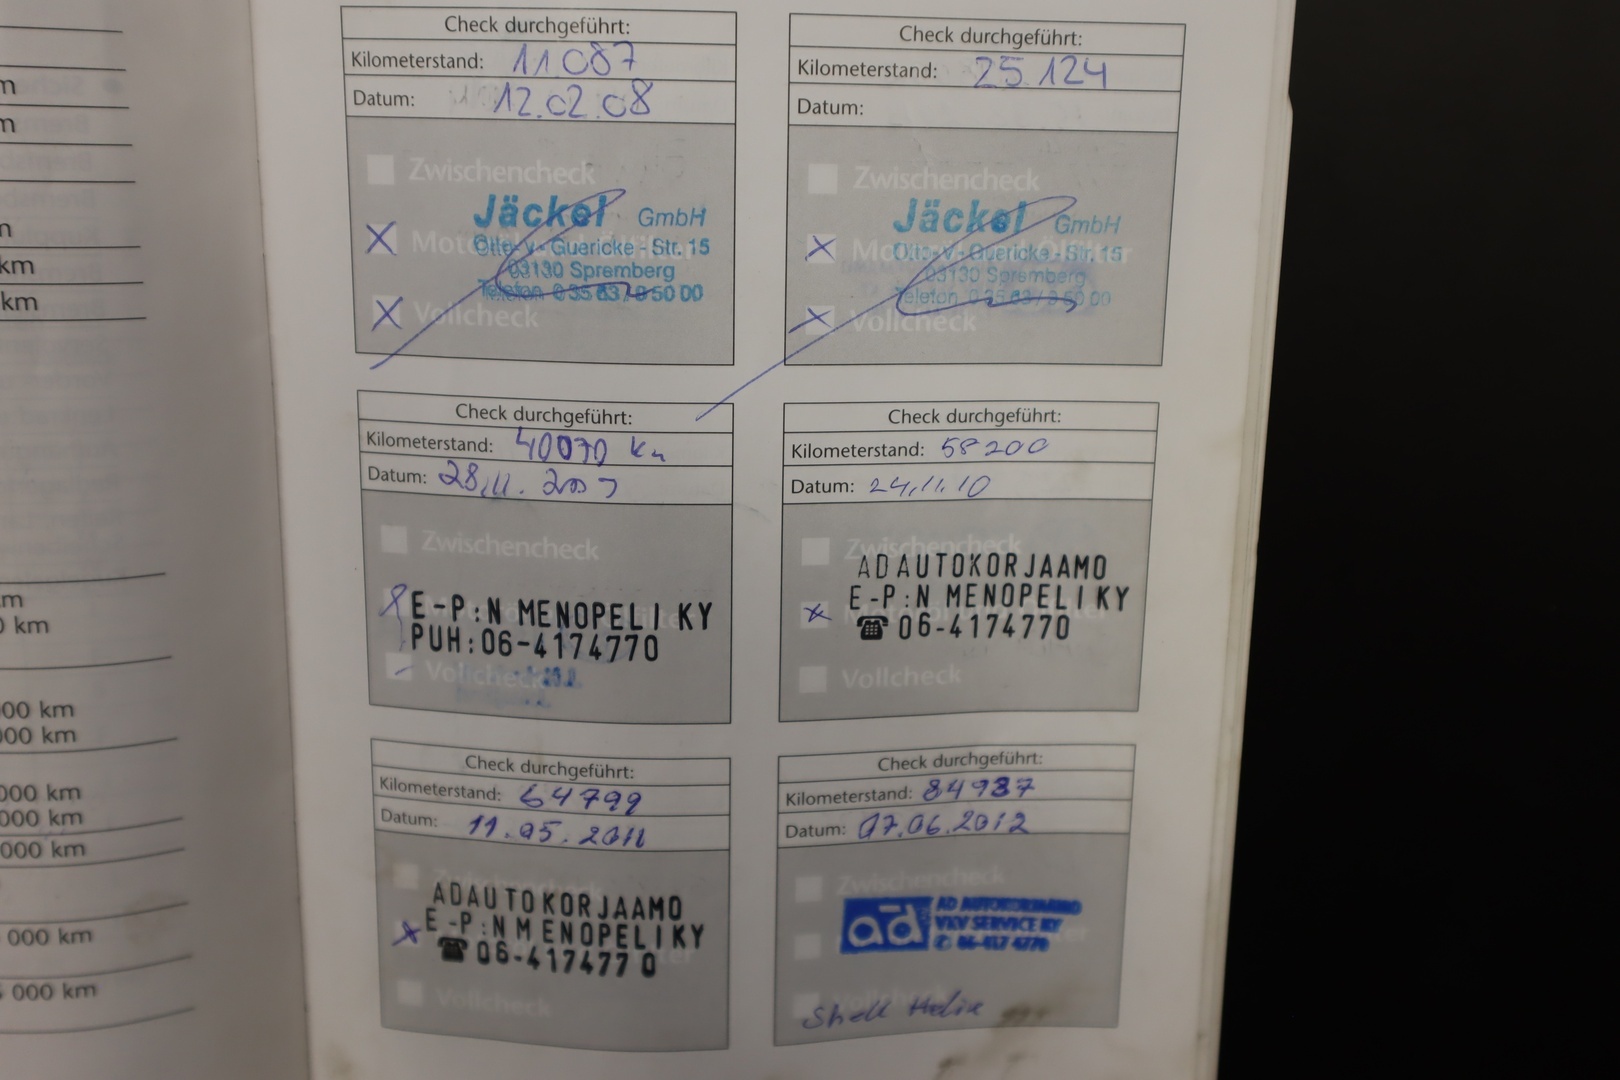 Check durchgeführt:
Kilometerstand: 11 087
Datum: 12.02.08
Zwischencheck
Jäckel GmbH
Otto-v-Guericke-Str. 15
03130 Spremberg
Telefon 0 35 63 / 9 50 00
Vollcheck
Check durchgeführt:
Kilometerstand: 25 124
Datum:
Zwischencheck
Jäckel GmbH
Otto-v-Guericke-Str. 15
03130 Spremberg
Telefon 0 35 63 / 9 50 00
Vollcheck
Check durchgeführt:
Kilometerstand: 40070 km
Datum: 28.11.2009
Zwischencheck
E-P:N MENOPELI KY
PUH:06-4174770
Vollcheck
Check durchgeführt:
Kilometerstand: 58200
Datum: 24.11.10
Zwischencheck
ADAUTOKORJAAMO
E-P:N MENOPELI KY
☎ 06-4174770
Vollcheck
Check durchgeführt:
Kilometerstand: 64799
Datum: 11.05.2011
ADAUTOKORJAAMO
E-P:N MENOPELI KY
☎ 06-4174770
Vollcheck
Check durchgeführt:
Kilometerstand: 84987
Datum: 07.06.2012
Zwischencheck
ad AD AUTOKORJAAMO
V&V SERVICE KY
✆ 06-417 4770
Shell Helix
m
m
m
km
km
km
0 km
00 km
000 km
000 km
000 km
000 km
000 km
000 km